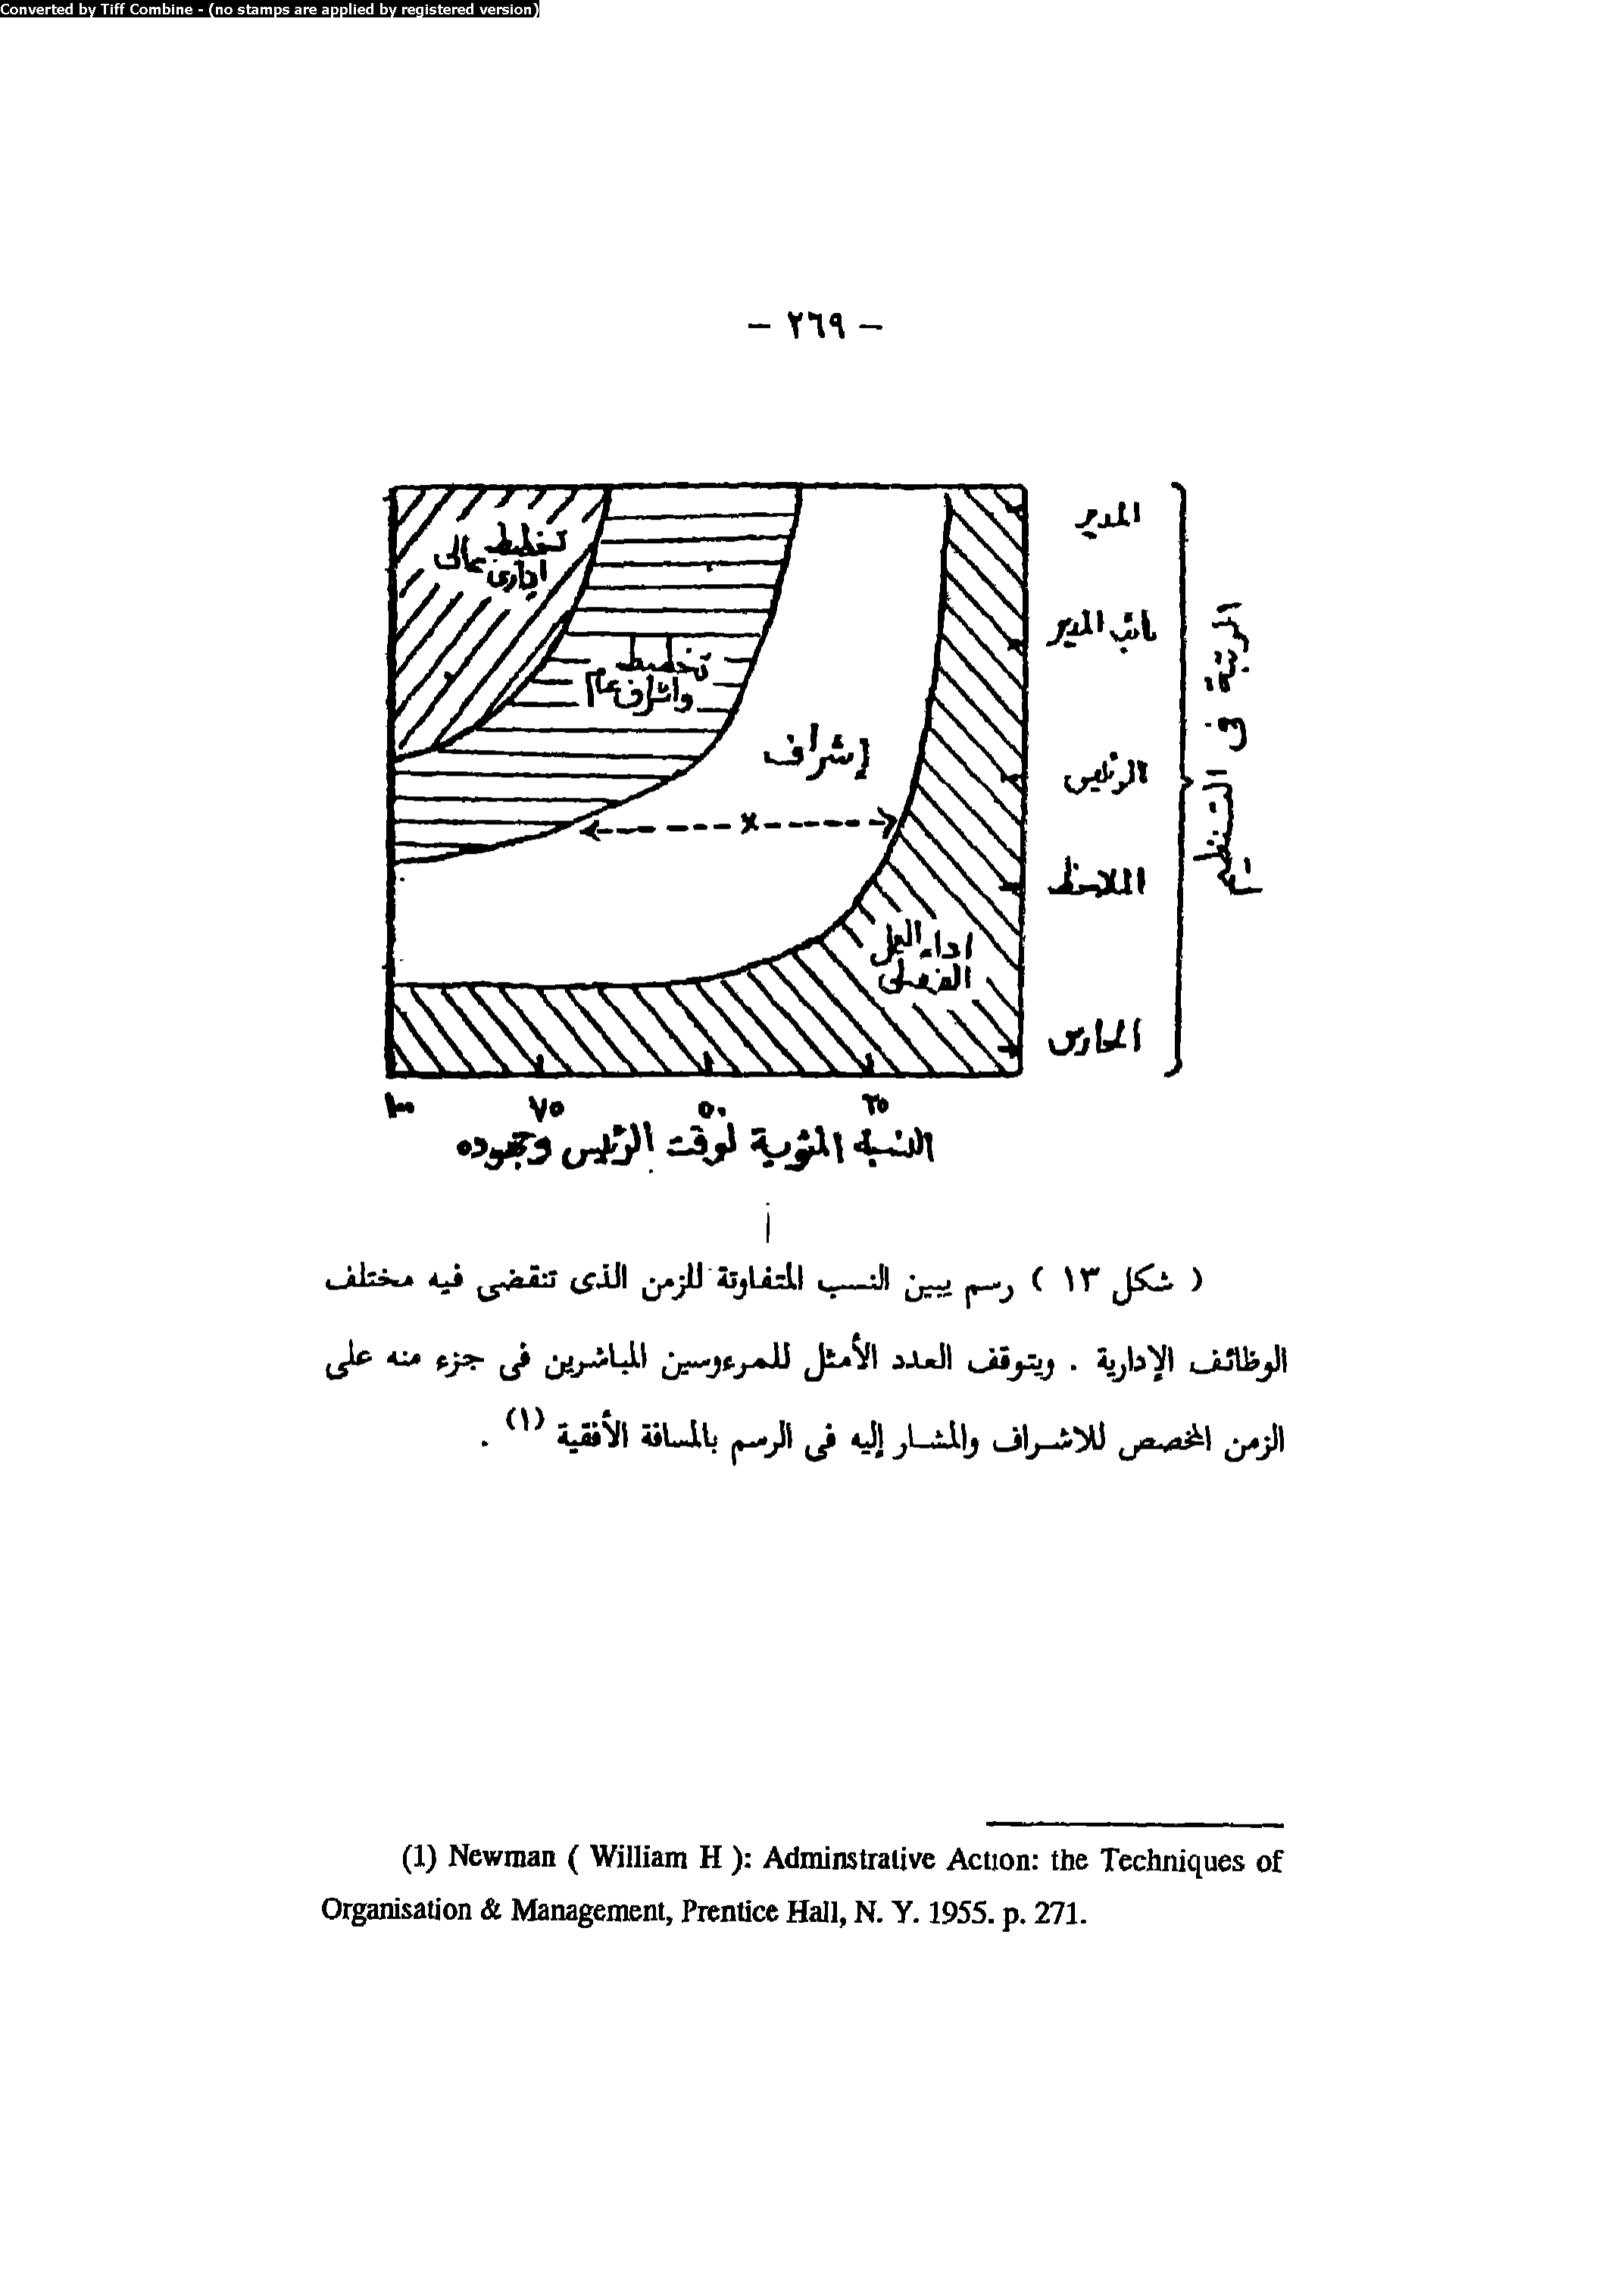 Converted by Tiff Combine - (no stamps are applied by registered version)
- ٢٦٩ -
المدير
نائب المدير
الرئيس
الملاحظ
الحارس
الرتبة فى التنظيم
تخطيط عالى
ادارى
تخطيط
واشراف عام
إشراف
x
اداء العمل
الفعلى
١٠٠ ٧٥ ٥٠ ٢٥
النسبة المئوية لوقت الرئيس ومجهوده
( شكل ١٣ ) رسم يبين النسب المتفاوتة للزمن الذى تنقضى فيه مختلف
الوظائف الإدارية . ويتوقف العدد الأمثل للمرءوسين المباشرين فى جزء منه على
الزمن المخصص للاشراف والمشار إليه فى الرسم بالمسافة الأفقية (١) .
(1) Newman ( William H ): Adminstrative Action: the Techniques of
Organisation & Management, Prentice Hall, N. Y. 1955. p. 271.